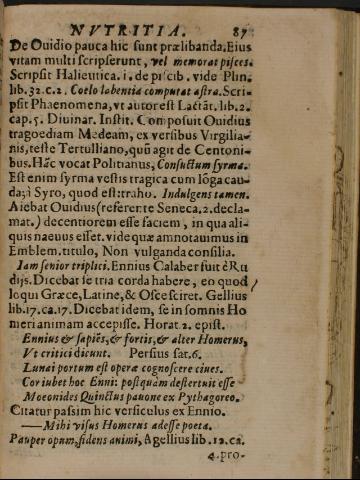 NVTRITIA. 87
De Ouidio pauca hic sunt prælibanda. Eius
vitam multi scripserunt, vel memorat pisces.
Scripsit Halieutica. i. de piscib. vide Plin.
lib. 32. c. 2. Coelo labentia computat astra. Scri-
psit Phaenomena, vt autor est Lactāt. lib. 2.
cap. 5. Diuinar. Instit. Composuit Ouidius
tragoediam Medeam, ex versibus Virgilia-
nis, teste Tertulliano, quū agit de Centoni-
bus. Hāc vocat Politianus, Consuctum syrma.
Est enim syrma vestis tragica cum lōga cau-
da; à Syro, quod est: traho. Indulgens tamen.
Aiebat Ouidius (referente Seneca. 2. decla-
mat.) decentiorem esse faciem, in qua ali-
quis naeuus esset. vide quæ amnotauimus in
Emblem. titulo, Non vulganda consilia.
Iam senior triplici. Ennius Calaber fuit è Ru
dijs. Dicebat se tria corda habere, eo quod
loqui Græce, Latine, & Osce sciret. Gellius
lib. 17. ca. 17. Dicebat idem, se in somnis Ho
meri animam accepisse. Horat. 2. epist.
Ennius & sapiēs, & fortis, & alter Homerus,
Vt critici dicunt. Persius sat. 6.
Lunai portum est operæ cognoscere ciues.
Cor iubet hoc Enni: postquàm destertuit esse
Moeonides Quinctus pauone ex Pythagoreo.
Citatur passim hic versiculus ex Ennio.
—Mihi visus Homerus adesse poeta.
Pauper opum, fidens animi, Agellius lib. 12. ca.
4. pro-